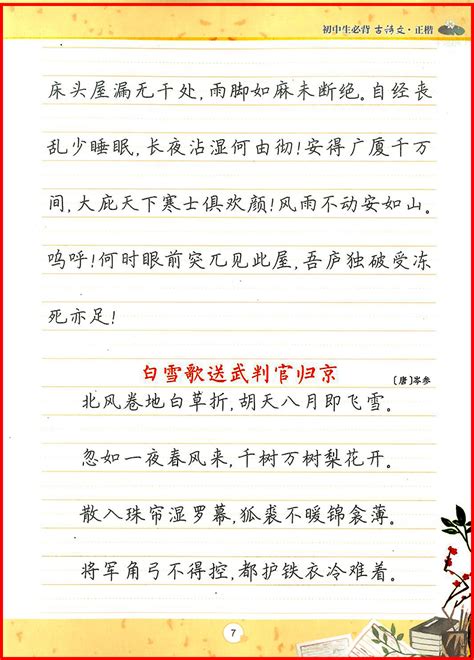 初中生必背 古诗文·正楷
床头屋漏无干处,雨脚如麻未断绝。自经丧
乱少睡眠,长夜沾湿何由彻!安得广厦千万
间,大庇天下寒士俱欢颜!风雨不动安如山。
呜呼!何时眼前突兀见此屋,吾庐独破受冻
死亦足!
白雪歌送武判官归京 〔唐〕岑参
北风卷地白草折,胡天八月即飞雪。
忽如一夜春风来,千树万树梨花开。
散入珠帘湿罗幕,狐裘不暖锦衾薄。
将军角弓不得控,都护铁衣冷难着。
7